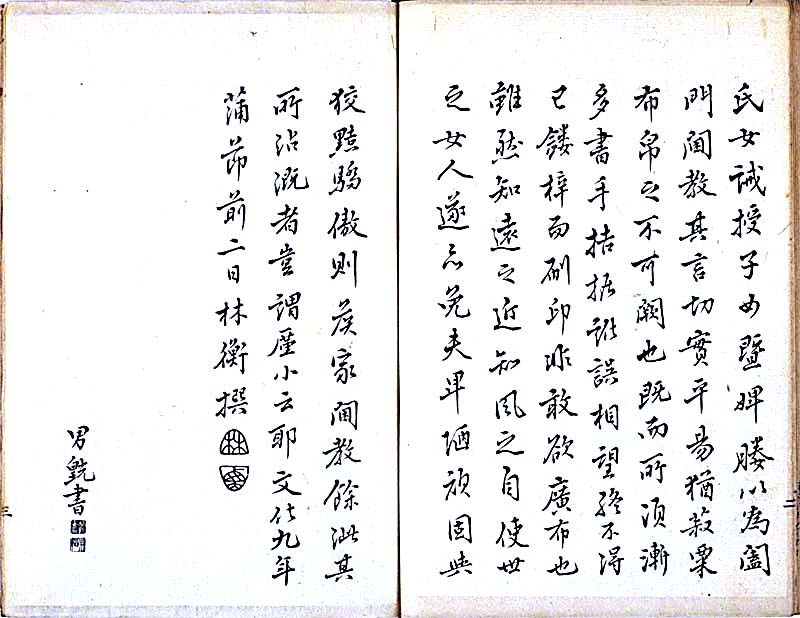 氏女誡授子女暨婢媵以為闔
門閫教其言切實平易猶菽粟
布帛之不可闕也既而所須漸
多書手拮据訛誤相望終不得
已鏤梓而刷印非敢欲廣布也
雖然知遠之近知風之自使世
之女人遂免夫卑陋頑固與
狡黠驕傲則侯家閫教餘泚其
所沾溉者豈謂廑小云耶文化九年
蒲節前二日林衡撰
林
男皝書